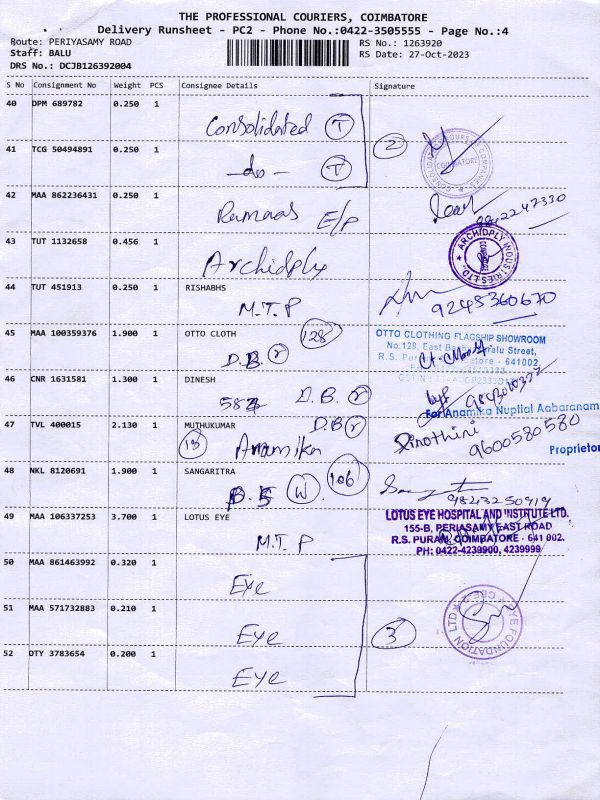 THE PROFESSIONAL COURIERS, COIMBATORE
Delivery Runsheet - PC2 - Phone No.:0422-3505555 - Page No.:4
Route: PERIYASAMY ROAD RS No.: 1263920
Staff: BALU RS Date: 27-Oct-2023
DRS No.: DCJB126392004
S No Consignment No Weight PCS Consignee Details Signature
40 DPM 689782 0.250 1
Consolidated T
2
41 TCG 50494891 0.250 1
-do- T
COIMBATORE
42 MAA 862236431 0.250 1
Ramaas E/P
9842247330
43 TUT 1132658 0.456 1
Archidply
ARCHIDPLY INDUSTRIES LTD.
44 TUT 451913 0.250 1 RISHABHS
M.T.P
9245360670
45 MAA 100359376 1.900 1 OTTO CLOTH 128
D.B. r
OTTO CLOTHING FLAGSHIP SHOWROOM
No.128, East Street,
R.S. 641002
46 CNR 1631581 1.300 1 DINESH
D.B. r
For Anamika Nuptial Aabaranam
47 TVL 400015 2.130 1 MUTHUKUMAR D.B r
18 Anamika
Dinothini
9600580580
Proprietor
48 NKL 8120691 1.900 1 SANGARITRA 106
W
9843250919
49 MAA 106337253 3.700 1 LOTUS EYE
M.T.P
LOTUS EYE HOSPITAL AND INSTITUTE LTD.
155-B, PERIASAMY EAST ROAD
R.S. PURAM, COIMBATORE - 641 002.
PH: 0422-4239900, 4239999
50 MAA 861463992 0.320 1
Eye
51 MAA 571732883 0.210 1
Eye
3
EYE FOUNDATION LTD
52 OTY 3783654 0.200 1
Eye